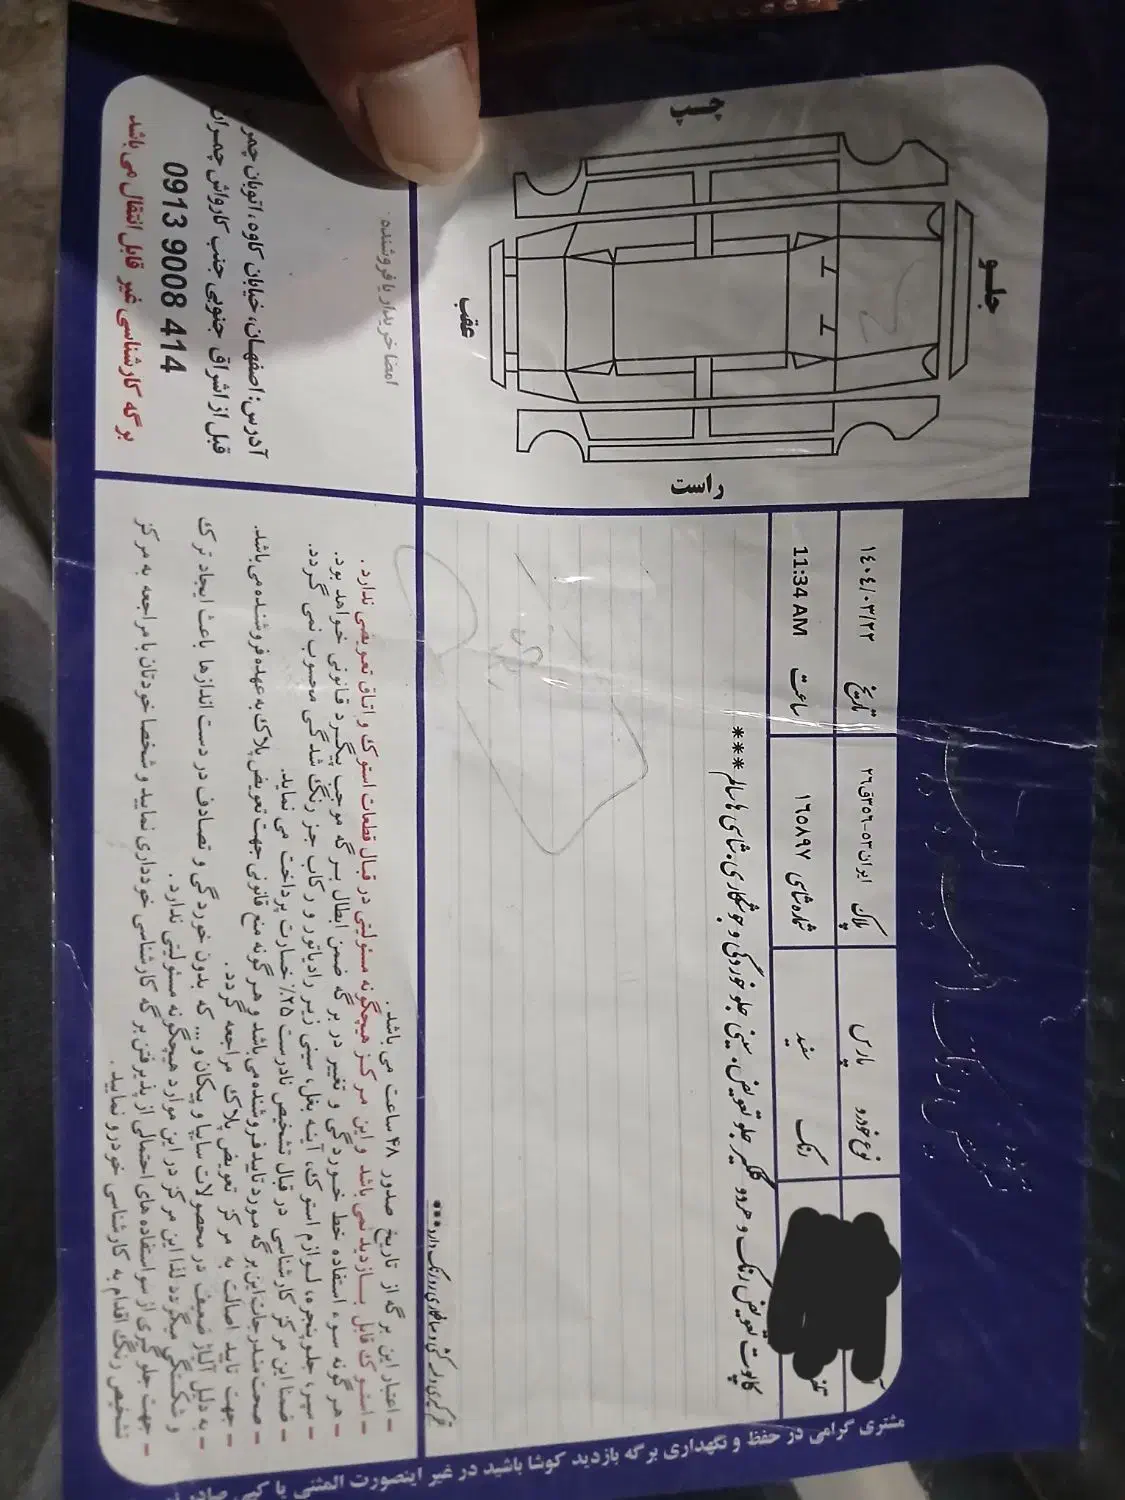 تاریخ ۱۴۰۴/۰۳/۲۲
پلاک ایران۵۳-۳۵۶ق۲۶
نوع خودرو پارس
ساعت 11:34 AM
شماره شاسی ۱۶۵۸۹۷
رنگ سفید
کاپوت تعویض رنگ و هردو گلگیر جلو تعویض. سینی جلو خوردگی و جوشکاری. شاسی ها سالم ***
چپ
جلو
عقب
راست
امضا خریدار یا فروشنده:
آدرس: اصفهان، خیابان کاوه، اتوبان چمران
قبل از اشراق جنوبی جنب کارواش چمران
0913 9008 414
برگه کارشناسی غیر قابل انتقال می باشد
– اعتبار این برگه از تاریخ صدور ۴۸ ساعت می باشد.
– استوک قابل بازدید نمی باشد و این مرکز هیچگونه مسئولیتی در قبال قطعات استوک و اتاق تعویضی ندارد.
– هرگونه سوء استفاده خط خوردگی و تغییر در برگه ضمن ابطال برگه موجب پیگرد قانونی خواهد بود.
– سپر، جلو پنجره، لوازم استوک، آینه بغل، سینی زیر رادیاتور و رکاب جز رنگ شدگی محسوب نمی گردد.
– ضمنا این مرکز کارشناسی در قبال تشخیص نادرست ۲۵٪ خسارت پرداخت می نماید.
– صحت مندرجات این برگه مورد تایید فروشنده می باشد و هرگونه منع قانونی جهت تعویض پلاک به عهده فروشنده می باشد.
– جهت تایید اصالت به مرکز تعویض پلاک مراجعه گردد.
– به دلیل آلیاژ ضعیف در محصولات سایپا و پیکان و ... که بدون خوردگی و تصادف در دست اندازها باعث ایجاد ترک
و شکستگی میگردد لذا این مرکز در این موارد هیچگونه مسئولیتی ندارد.
– جهت جلوگیری از سو استفاده های احتمالی از پذیرفتن برگه کارشناسی خودداری نمایید و شخصا خودتان با مراجعه به مرکز
تشخیص رنگ اقدام به کارشناسی خودرو نمایید.
مشتری گرامی در حفظ و نگهداری برگه بازدید کوشا باشید در غیر اینصورت المثنی یا کپی صادر